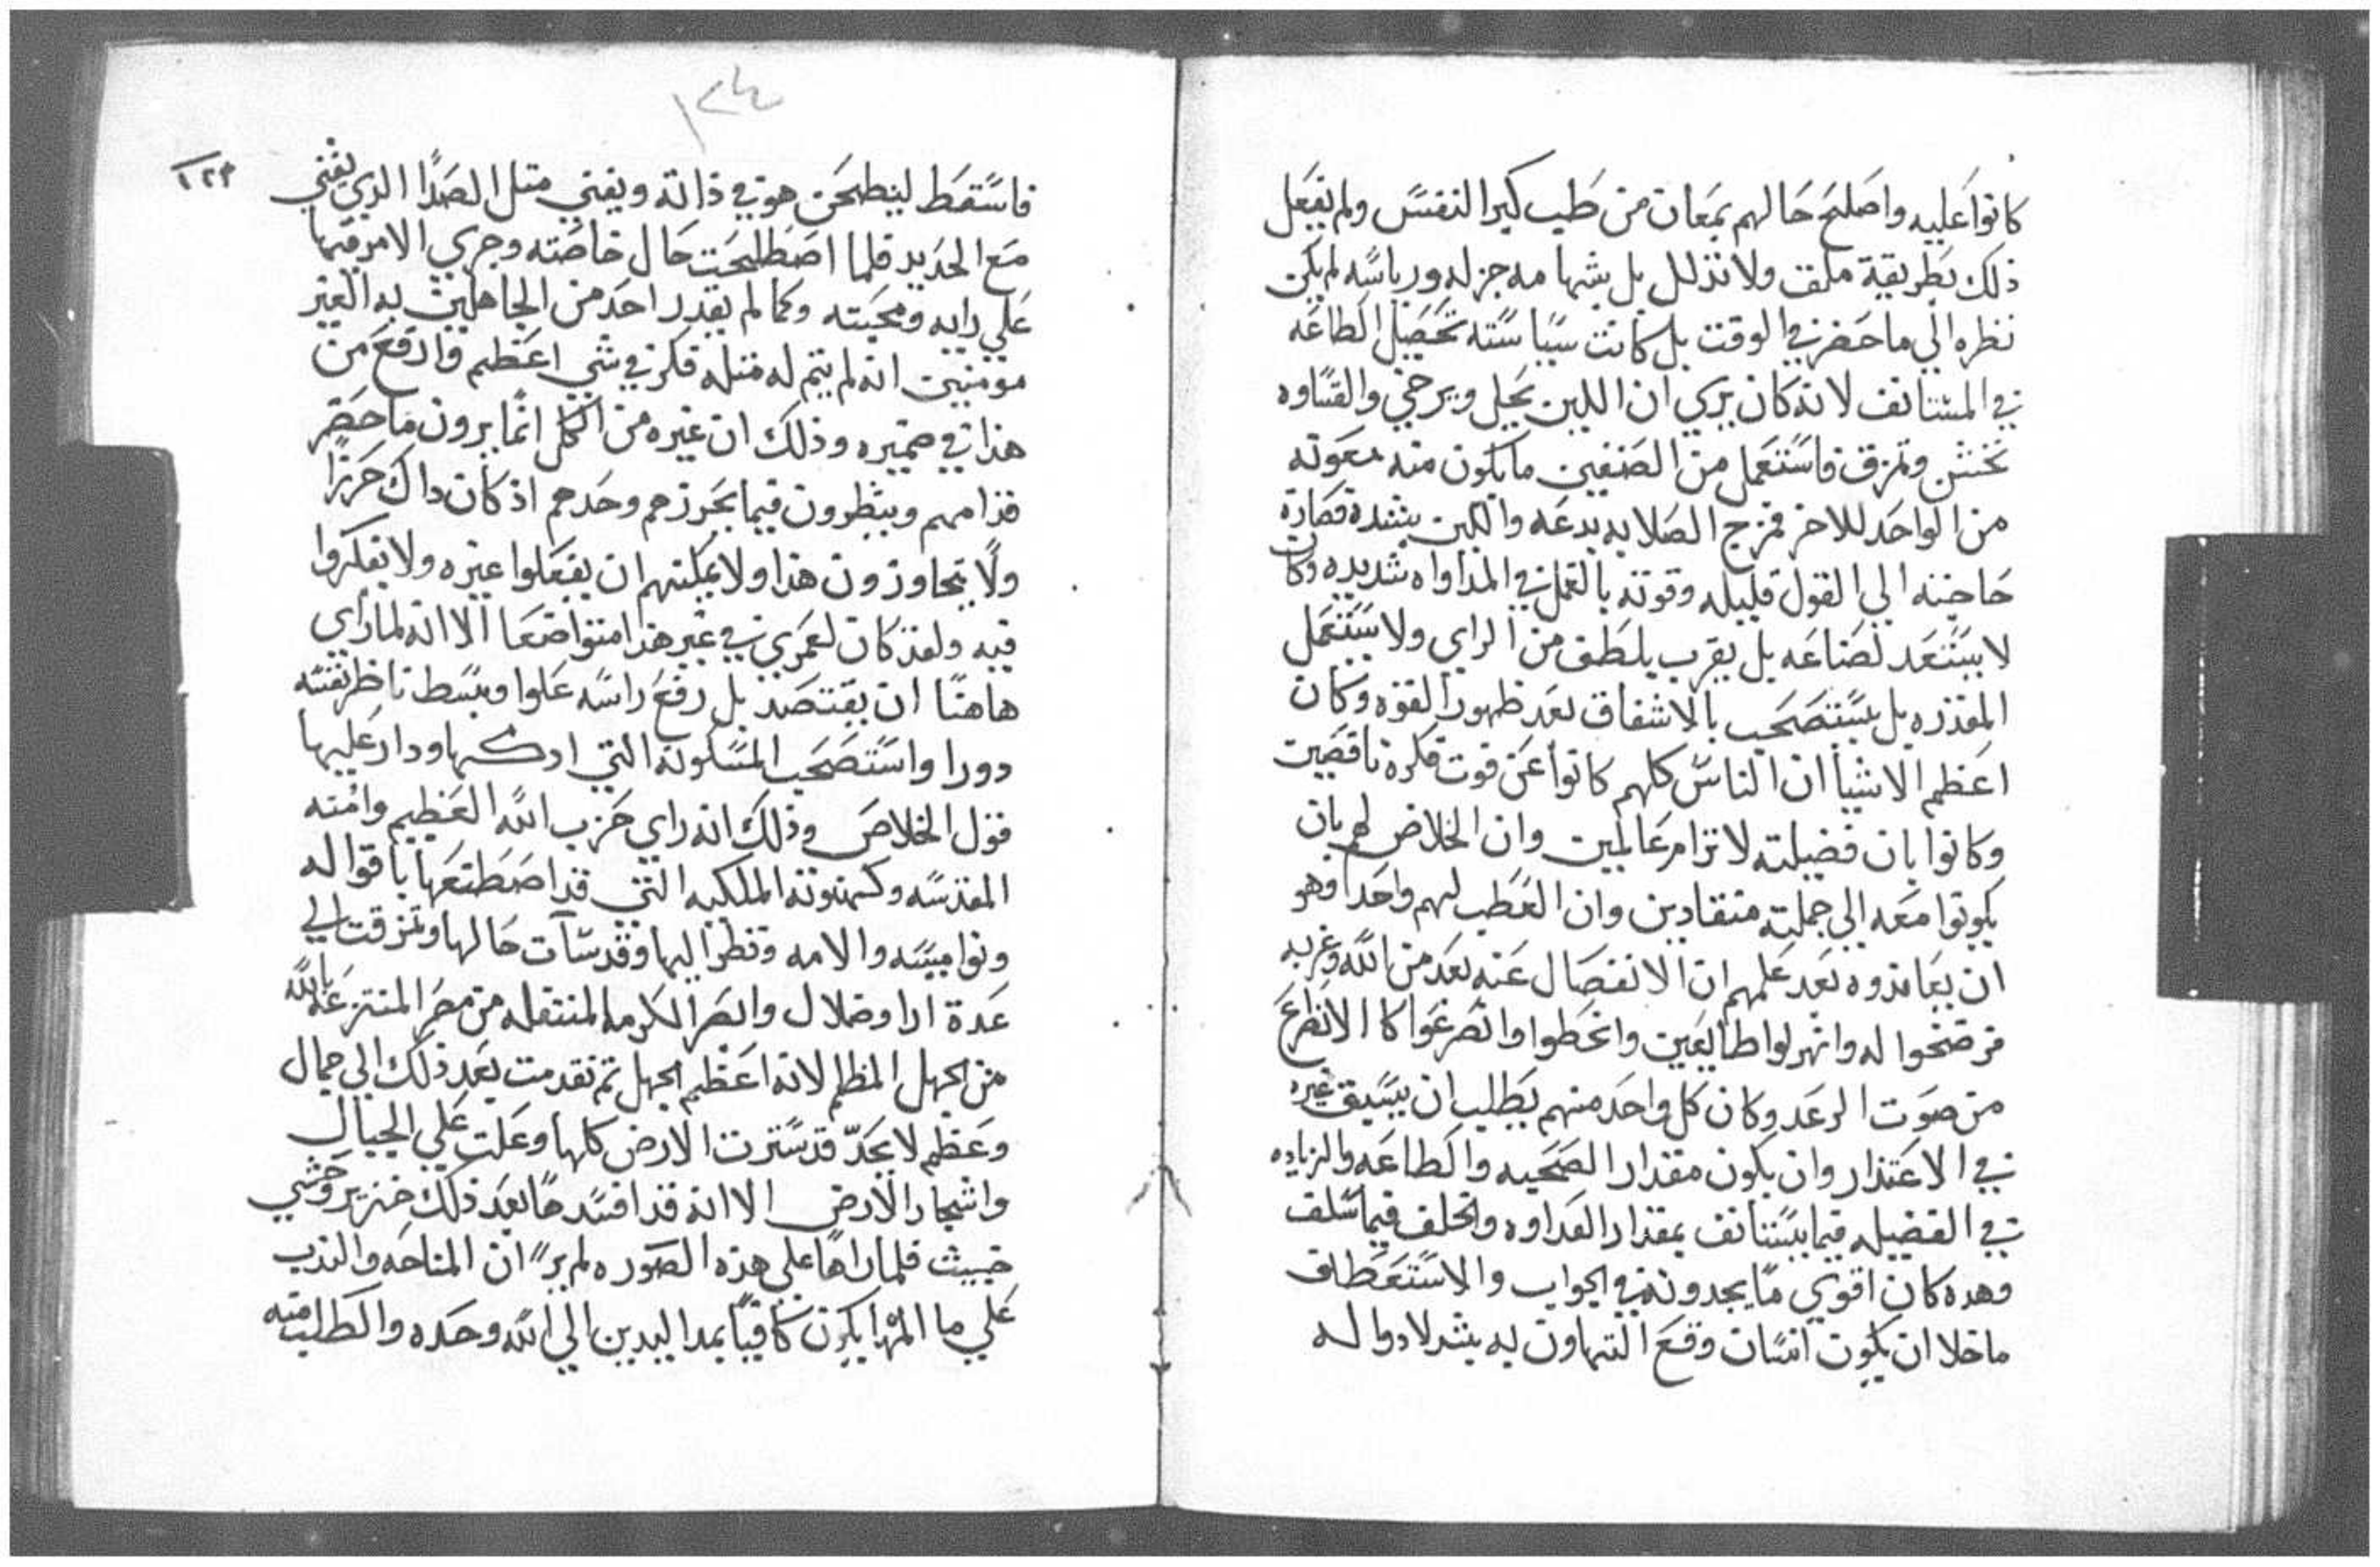 كانوا عليه واصلح حالهم بمعان من طيب كبر النفس ولم يفعل
ذلك بطريقة ملق ولا تذلل بل بشهامه جزله ورياسه لم يكن
نظره الي ما حضر في الوقت بل كانت سياسته تحصيل الطاعه
في المستانف لانه كان يري ان اللين يحل ويرخي والقساوه
تخشن وتمزق فاستعمل من الصنفين ما يكون منه معونه
من الواحد للاخر فمزج الصلابه بدعه واللين بشده فصارة
حاجته الي القول قليله وقوته بالعمل في المداواه شديده وكان
لا يستعد لصناعه بل يقرب بلطف من الراي ولا يستعمل
المقدره بل يستصحب بالاشفاق بعد ظهور القوه وكان
اعظم الاشيا ان الناس كلهم كانوا عن قوت فكرة ناقصين
وكانوا بان فضيلته لا ترام عالمين وان الخلاص لهم بان
يكونوا معه الي جملته منقادين وان العطب لهم واحدا وهو
ان يعاندوه بعد علمهم ان الانفصال عنه بعد من الله وغربه
فرضخوا له وانهزلوا طايعين وانحطوا وانصرعوا كالانضراع
من صوت الرعد وكان كل واحد منهم يطلب ان يسبق غيره
في الاعتذار وان يكون مقدار الصحبه والطاعه والزياده
في الفضيله فيما يستانف بمقدار العداوه والخلف فيما سلف
وهده كان اقوي ما يجدونه في الجواب والاستعطاف
ما خلا ان يكون انسان وقع التهاون به بشر لا دوا له
١٢٤
١٢٣
فاسقط لينطحن هو في ذاته ويفني مثل الصدا الذي يفني
مع الحديد فلما اصطلحت حال خاصته وجري الامر فيها
علي رايه ومحبته وكما لم يقدر احد من الجاهلين به الغير
مومنين انه لم يتم له مثله فكر في شي اعظم وارفع من
هذا في ضميره وذلك ان غيره من الكل انما يرون ما حضر
قدامهم وينظرون فيما يحرزهم وحدهم اذ كان داك حرزا
ولا يتجاوزون هذا ولا يمكنهم ان يفعلوا غيره ولا يفكروا
فيه ولقد كان لعمري في غير هذا متواضعا الا انه لما راي
هاهنا ان يقتصد بل رفع راسه علوا وبسط ناظر نفسه
دورا واستصحب المسكونه التي ادركها ودار عليها
قول الخلاص وذلك انه راي حزب الله العظيم وامته
المقدسه وكهنوته الملكيه التي قد اصطنعها باقواله
ونواميسه والامه ونظر اليها وقد سآت حالها وتمزقت الي
عدة ارا وضلال وابصر الكرمه المنتقله من مصر المنتزعه بالله
من الجهل المظلم لانه اعظم الجهل تم تقدمت بعد ذلك الي جمال
وعظم لا يحد قد سترت الارض كلها وعلت علي الجبال
واشجار الارض الا انه قد افسدها بعد ذلك خنزير وحشي
خبيث فلما راها علي هذه الصوره لم ير ان المناحه والندب
علي ما المها يكون كافيا بمد اليدين الي الله وحده والطلب منه